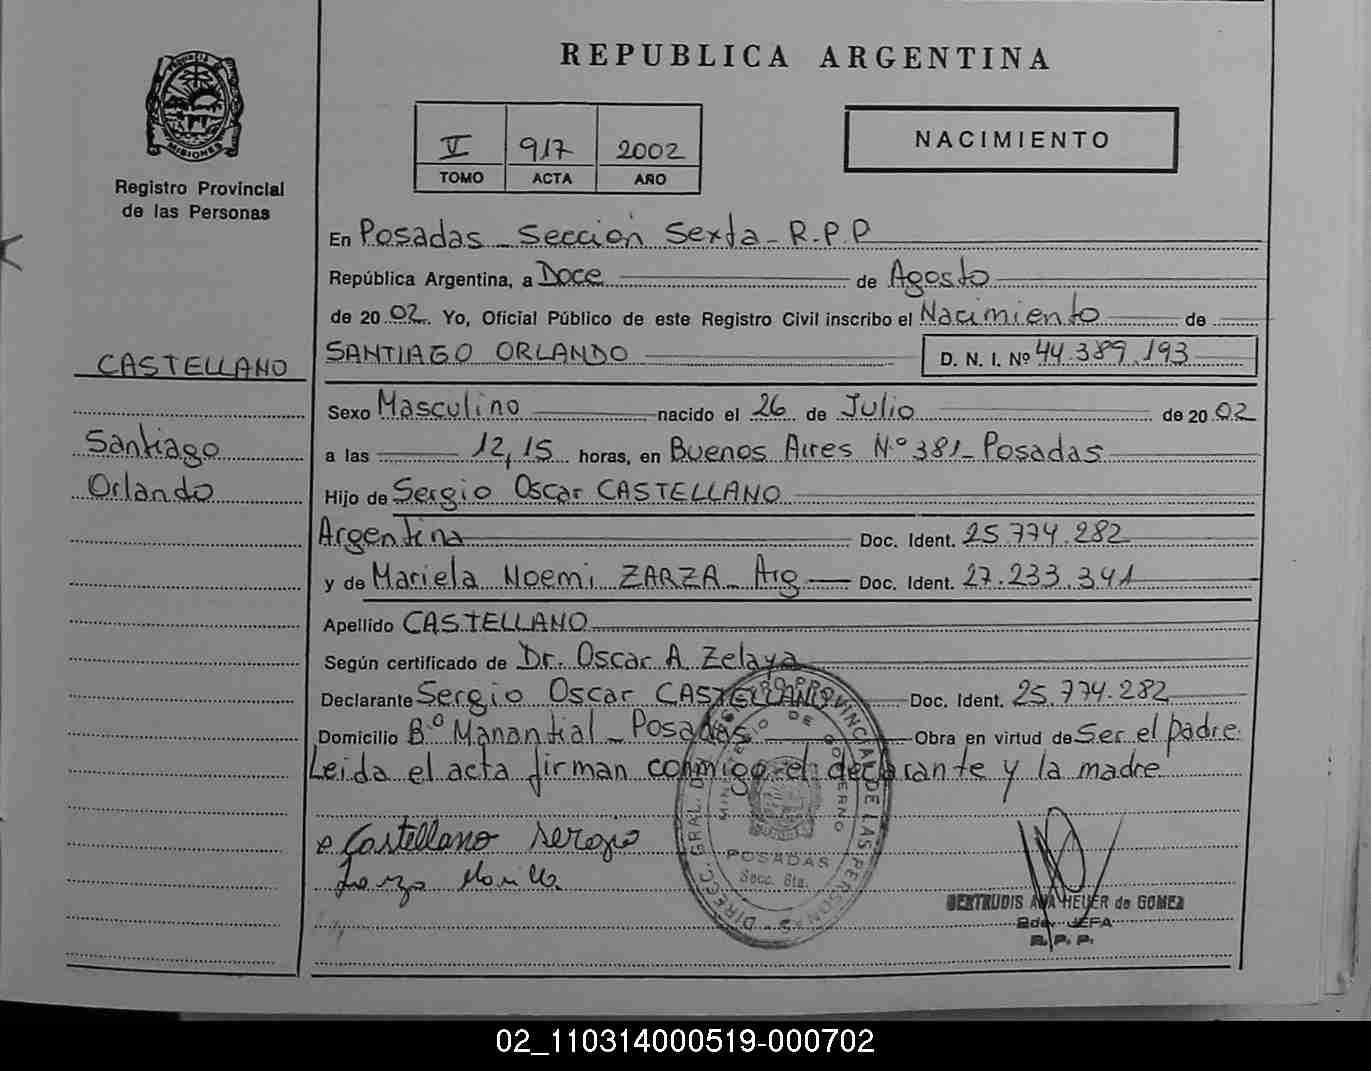 REPUBLICA ARGENTINA
MISIONES
Registro Provincial
de las Personas
V 917 2002
TOMO ACTA AÑO
NACIMIENTO
En Posadas - Sección Sexta - R.P.P
República Argentina, a Doce de Agosto
de 2002. Yo, Oficial Público de este Registro Civil inscribo el Nacimiento de
SANTIAGO ORLANDO D. N. I. Nº 44.389.193
CASTELLANO
Sexo Masculino nacido el 26 de Julio de 2002
Santiago
a las 12,15 horas, en Buenos Aires Nº 381 - Posadas
Orlando
Hijo de Sergio Oscar CASTELLANO
Argentina Doc. Ident. 25.774.282
y de Mariela Noemi ZARZA - Arg Doc. Ident. 27.233.341
Apellido CASTELLANO
Según certificado de Dr. Oscar A Zelaya
Declarante Sergio Oscar CASTELLANO Doc. Ident. 25.774.282
Domicilio Bº Manantial - Posadas Obra en virtud de Ser el padre.
Leida el acta firman conmigo el declarante y la madre
Castellano Sergio
DIRECC. GRAL. DEL REGISTRO PROVINCIAL DE LAS PERSONAS
MINISTERIO DE GOBIERNO
POSADAS
Secc. 6ta.
GERTRUDIS ANA HEUER de GOMEZ
JEFA
R. P. P.
02_110314000519-000702